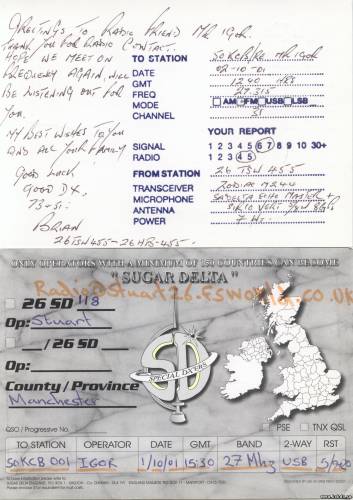 GREETINGS TO RADIO FRIEND MR IGOR
THANK YOU FOR RADIO CONTACT.
HOPE WE MEET ON
FREQUENCY AGAIN, WILL
BE LISTENING OUT FOR
YOU.
MY BEST WISHES TO YOU
AND ALL YOUR FAMILY
GOOD LUCK
GOOD DX.
73+51.
BRIAN
26TSW455-26HFB-455.
TO STATION MR IGOR
DATE 02-10-01
GMT 1240 HRS
FREQ 27.315
MODE AM FM USB LSB
CHANNEL 31
YOUR REPORT
SIGNAL 1 2 3 4 5 6 7 8 9 10 30+
RADIO 1 2 3 4 5
FROM STATION 26 TSW 455
TRANSCEIVER
MICROPHONE
ANTENNA
POWER
ONLY OPERATORS WITH A MINIMUM OF 150 COUNTRIES CAN BECOME
" SUGAR DELTA "
Radio@Stuart26.FSWorld.co.uk
26 SD 118
Op: Stuart
__/26 SD
Op:
County / Province
Manchester
SD
SPECIAL DX'ERS
QSO / Progressive No.
PSE TNX QSL
TO STATION OPERATOR DATE GMT BAND 2-WAY RST
50KCB 001 IGOR 1/10/01 15:30 27 Mhz USB